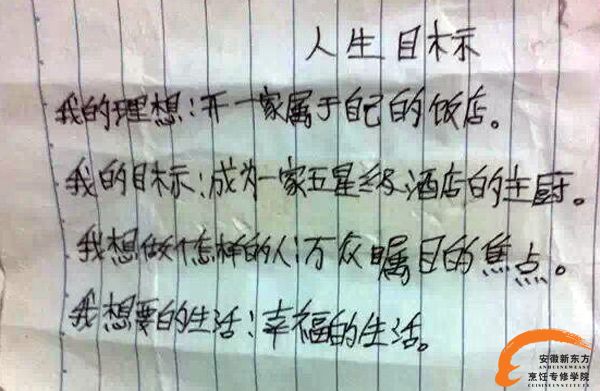 人生目标
我的理想:开一家属于自己的饭店。
我的目标:成为一家五星级酒店的主厨。
我想做个怎样的人:万众瞩目的焦点。
我想要的生活:幸福的生活。
安徽新东方
ANHUI NEW EAST
烹饪专修学院
CUISINE INSTITUTE